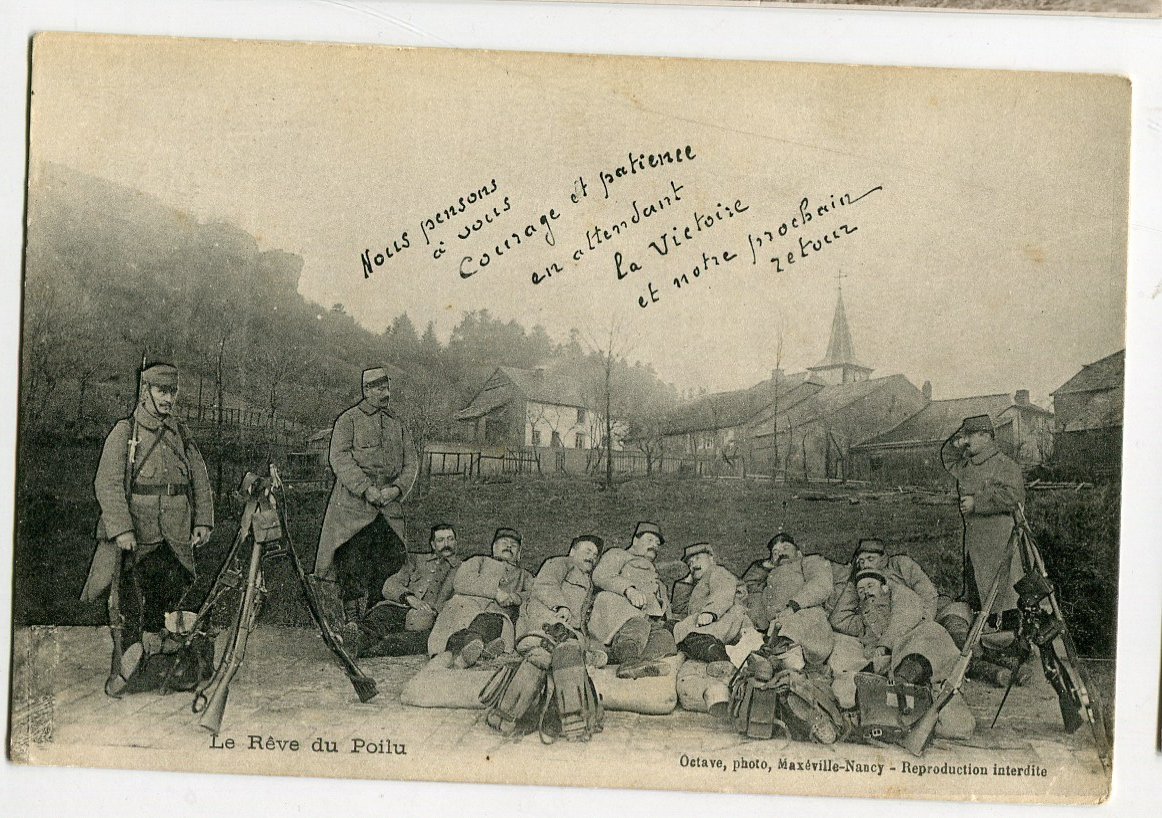 Nous pensons
à vous
Courage et patience
en attendant
la Victoire
et notre prochain
retour
Le Rêve du Poilu
Octave, photo, Maxéville-Nancy - Reproduction interdite